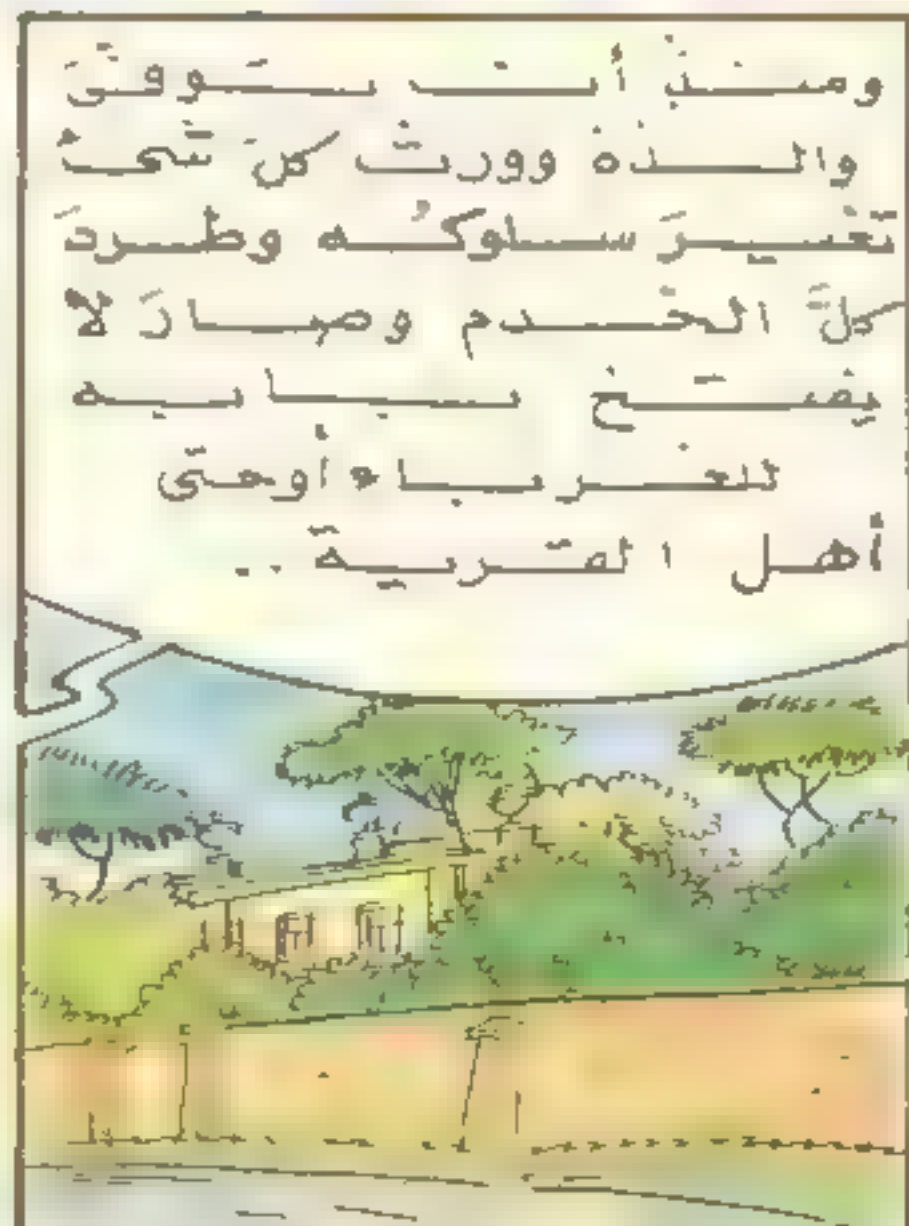 ومنذ أن توفى
والده وورث كل شئ
تغير سلوكه وطرد
كل الخدم وصار لا
يفتح بابه
للغرباء أو حتى
أهل القرية ..